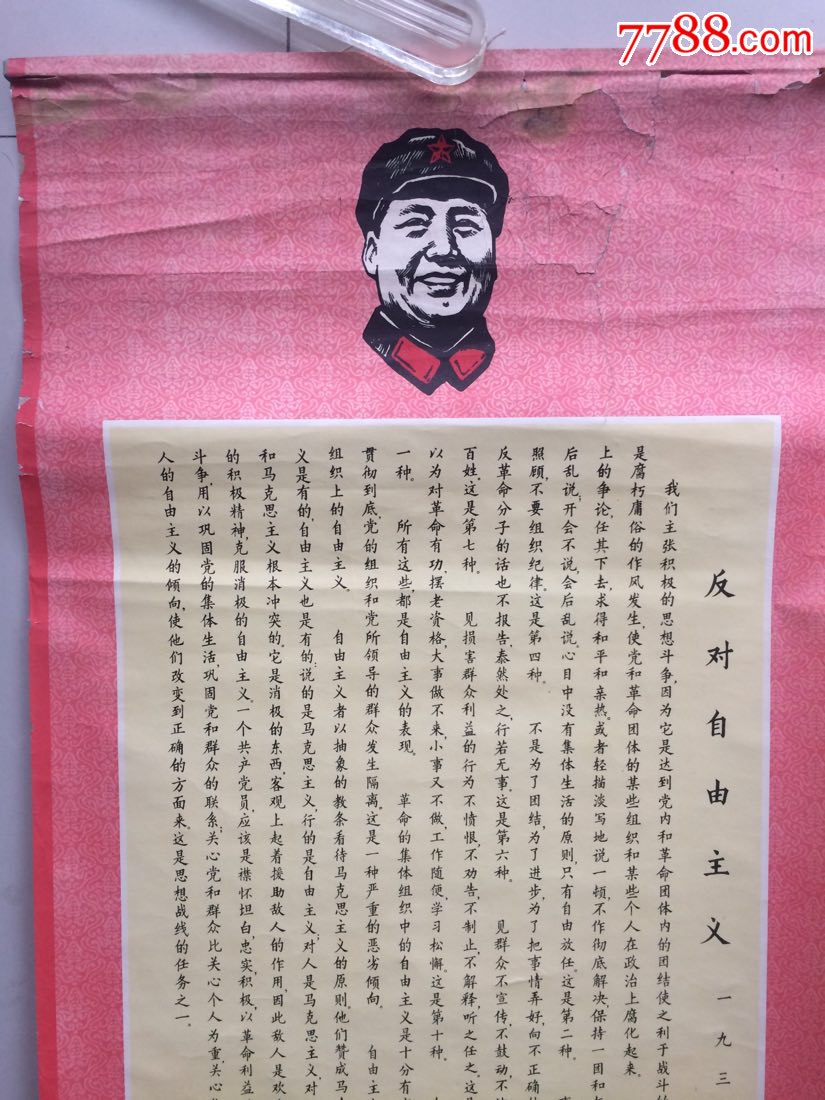 7788.com
反对自由主义 一九三
我们主张积极的思想斗争,因为它是达到党内和革命团体内的团结使之利于战斗的
是腐朽庸俗的作风发生,使党和革命团体的某些组织和某些个人在政治上腐化起来。
上的争论,任其下去,求得和平和亲热。或者轻描淡写地说一顿,不作彻底解决,保持一团和
后乱说;开会不说,会后乱说。心目中没有集体生活的原则,只有自由放任。这是第二种。
照顾,不要组织纪律。这是第四种。 不是为了团结,为了进步,为了把事情弄好,向不正确的
反革命分子的话也不报告,泰然处之,行若无事。这是第六种。 见群众不宣传,不鼓动,不
百姓。这是第七种。 见损害群众利益的行为不愤恨,不劝告,不制止,不解释,听之任之。这是
以为对革命有功,摆老资格,大事做不来,小事又不做,工作随便,学习松懈。这是第十种。
一种。 所有这些,都是自由主义的表现。 革命的集体组织中的自由主义是十分有
贯彻到底,党的组织和党所领导的群众发生隔离。这是一种严重的恶劣倾向。 自由主
组织上的自由主义。 自由主义者以抽象的教条看待马克思主义的原则。他们赞成马
义是有的,自由主义也是有的;说的是马克思主义,行的是自由主义;对人是马克思主义,对
和马克思主义根本冲突的。它是消极的东西,客观上起着援助敌人的作用,因此敌人是欢
的积极精神,克服消极的自由主义。一个共产党员,应该是襟怀坦白,忠实,积极,以革命利益
斗争,用以巩固党的集体生活,巩固党和群众的联系;关心党和群众比关心个人为重,关心
人的自由主义的倾向,使他们改变到正确的方面来。这是思想战线的任务之一。